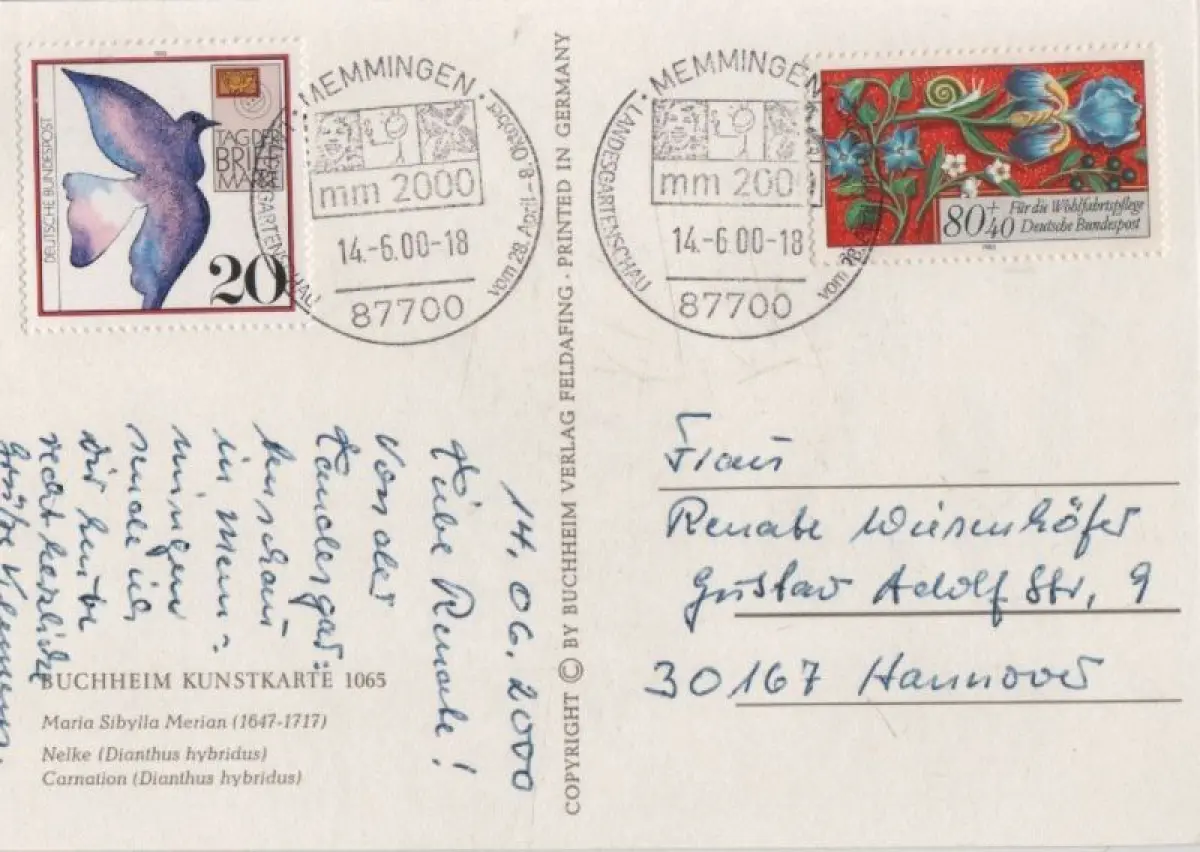 DEUTSCHE BUNDESPOST
TAG DER
BRIEF
MARKE
20
MEMMINGEN
mm 2000
14.-6.00-18
87700
vom 28. April - 8. Oktober
MEMMINGEN
mm 200
14.-6.00-18
87700
LANDESGARTENSCHAU
80+40
Für die Wohlfahrtspflege
Deutsche Bundespost
1985
14.06.2000
Liebe Renate!
Von der
Landesgar=
tenschau
in Mem=
mingen
sende ich
Dir heute
recht herzliche
Grüße
COPYRIGHT © BY BUCHHEIM VERLAG FELDAFING · PRINTED IN GERMANY
Frau
Renate Wiesenhöfer
Gustav Adolf Str. 9
30167 Hannover
BUCHHEIM KUNSTKARTE 1065
Maria Sibylla Merian (1647-1717)
Nelke (Dianthus hybridus)
Carnation (Dianthus hybridus)